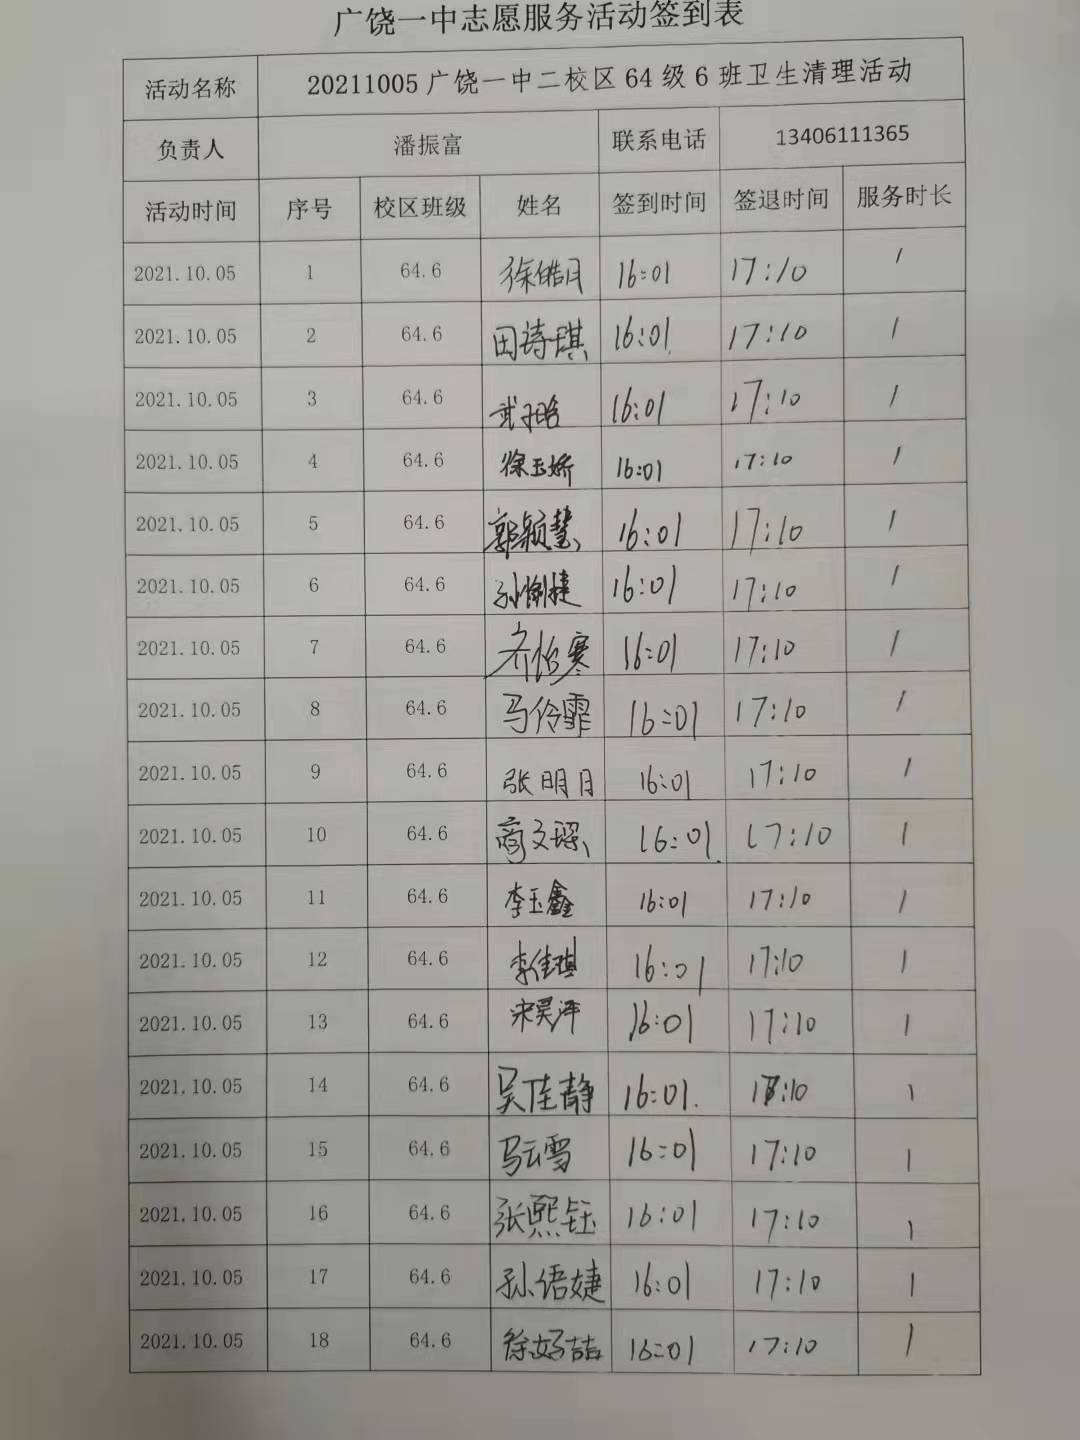 广饶一中志愿服务活动签到表
活动名称 20211005广饶一中二校区64级6班卫生清理活动
负责人 潘振富 联系电话 13406111365
活动时间 序号 校区班级 姓名 签到时间 签退时间 服务时长
2021.10.05 1 64.6 徐皓月 16:01 17:10 1
2021.10.05 2 64.6 田诗琪 16:01 17:10 1
2021.10.05 3 64.6 16:01 17:10 1
2021.10.05 4 64.6 徐玉娇 16:01 17:10 1
2021.10.05 5 64.6 郭颖慧 16:01 17:10 1
2021.10.05 6 64.6 16:01 17:10 1
2021.10.05 7 64.6 齐怡寒 16:01 17:10 1
2021.10.05 8 64.6 马伶霏 16:01 17:10 1
2021.10.05 9 64.6 张明月 16:01 17:10 1
2021.10.05 10 64.6 16:01 17:10 1
2021.10.05 11 64.6 李玉鑫 16:01 17:10 1
2021.10.05 12 64.6 李佳琪 16:01 17:10 1
2021.10.05 13 64.6 16:01 17:10 1
2021.10.05 14 64.6 吴佳静 16:01 17:10 1
2021.10.05 15 64.6 马云雪 16:01 17:10 1
2021.10.05 16 64.6 张熙钰 16:01 17:10 1
2021.10.05 17 64.6 孙语婕 16:01 17:10 1
2021.10.05 18 64.6 16:01 17:10 1